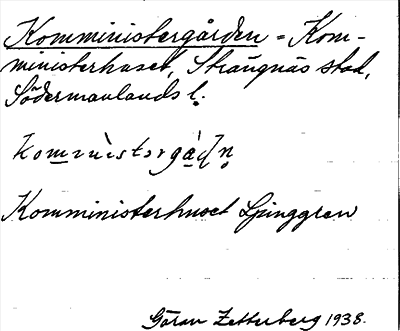 Komministergården = Kom-
ministerhuset, Strängnäs stad,
Södermanlands l.
Komministerhuset Ljunggren
Göran Zetterberg 1938.